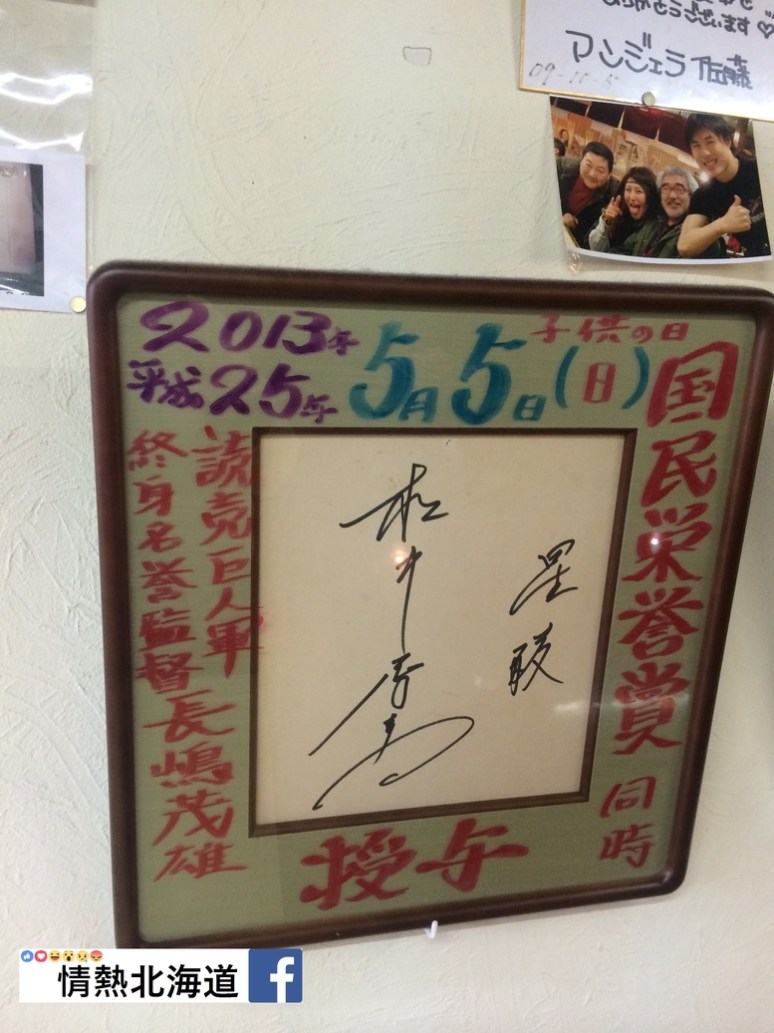 ありがとうございます♡
マンジェラ佐藤
09-11-5
2013年
平成25年
5月5日(日)
子供の日
国民栄誉賞
同時
授与
読売巨人軍
終身名誉監督長嶋茂雄
星稜
松井秀喜
情熱北海道